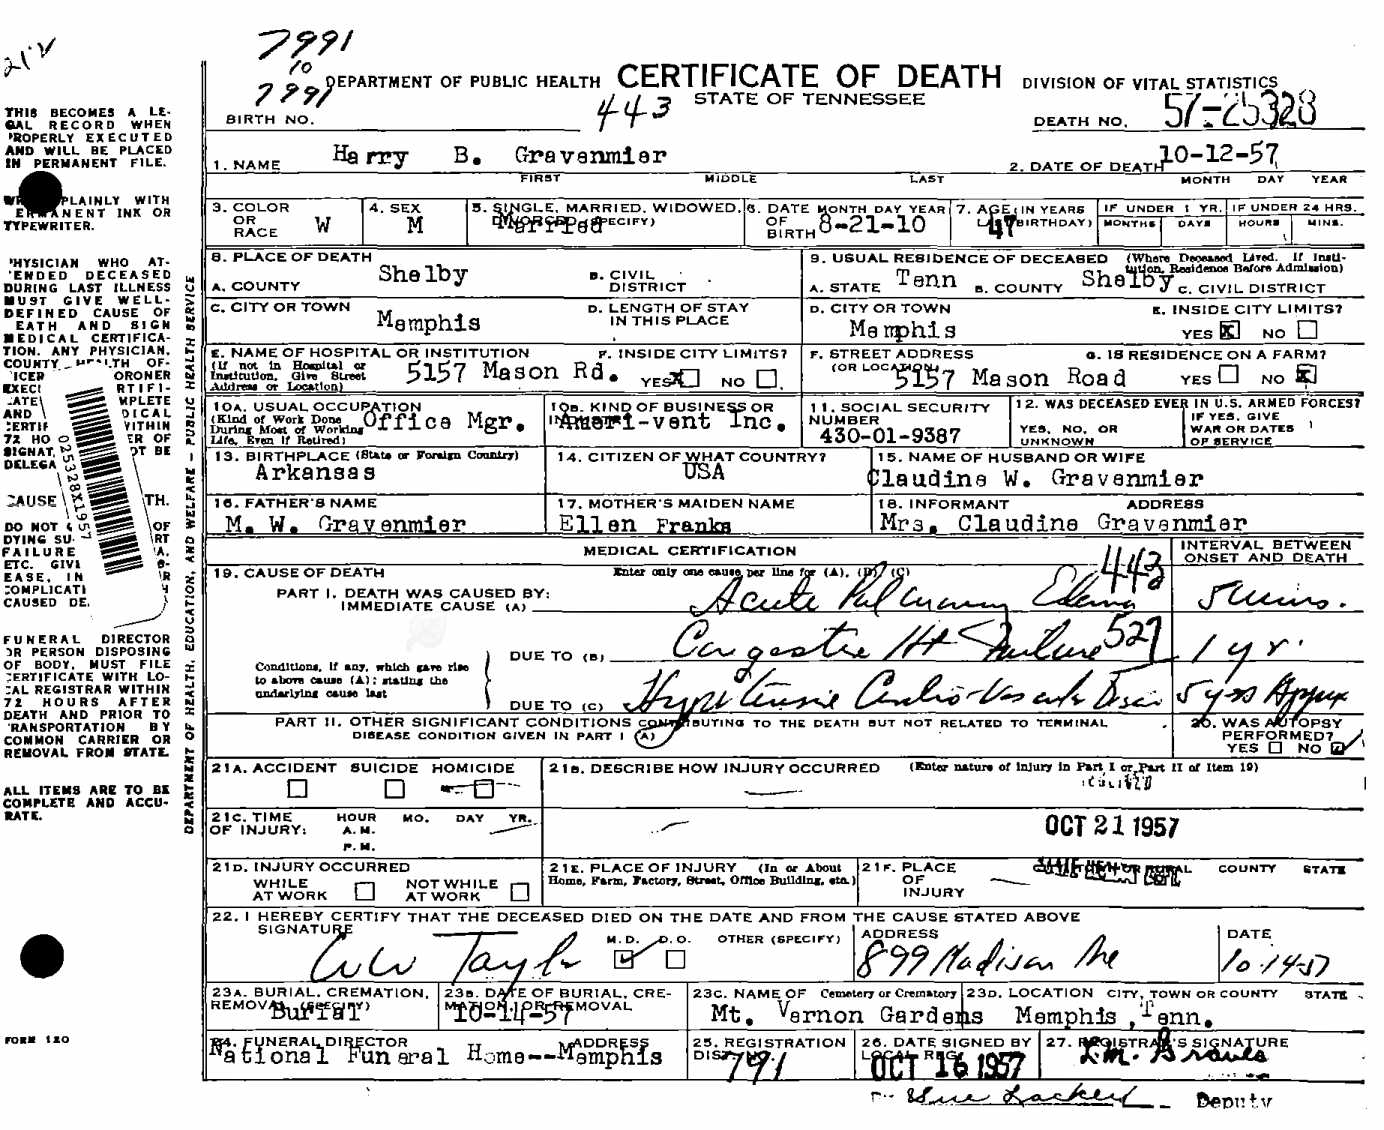 21V
7991
10
7991
DEPARTMENT OF PUBLIC HEALTH CERTIFICATE OF DEATH DIVISION OF VITAL STATISTICS
443 STATE OF TENNESSEE
BIRTH NO. DEATH NO. 57-25328
1. NAME Harry B. Gravenmier 2. DATE OF DEATH 10-12-57
FIRST MIDDLE LAST MONTH DAY YEAR
3. COLOR OR RACE W
4. SEX M
5. SINGLE, MARRIED, WIDOWED, DIVORCED (SPECIFY) Married
6. DATE OF BIRTH MONTH DAY YEAR 8-21-10
7. AGE (IN YEARS LAST BIRTHDAY) 47
IF UNDER 1 YR. MONTHS DAYS
IF UNDER 24 HRS. HOURS MINS.
8. PLACE OF DEATH
A. COUNTY Shelby B. CIVIL DISTRICT
C. CITY OR TOWN Memphis D. LENGTH OF STAY IN THIS PLACE
E. NAME OF HOSPITAL OR INSTITUTION (If not in Hospital or Institution, Give Street Address or Location) 5157 Mason Rd.
F. INSIDE CITY LIMITS? YES X NO
9. USUAL RESIDENCE OF DECEASED (Where Deceased Lived. If Institution, Residence Before Admission)
A. STATE Tenn B. COUNTY Shelby C. CIVIL DISTRICT
D. CITY OR TOWN Memphis E. INSIDE CITY LIMITS? YES X NO
F. STREET ADDRESS (OR LOCATION) 5157 Mason Road
G. IS RESIDENCE ON A FARM? YES NO X
10A. USUAL OCCUPATION (Kind of Work Done During Most of Working Life, Even If Retired) Office Mgr.
10B. KIND OF BUSINESS OR Ameri-vent Inc.
11. SOCIAL SECURITY NUMBER 430-01-9387
12. WAS DECEASED EVER IN U.S. ARMED FORCES? YES, NO, OR UNKNOWN IF YES, GIVE WAR OR DATES OF SERVICE
13. BIRTHPLACE (State or Foreign Country) Arkansas
14. CITIZEN OF WHAT COUNTRY? USA
15. NAME OF HUSBAND OR WIFE Claudine W. Gravenmier
16. FATHER'S NAME M. W. Gravenmier
17. MOTHER'S MAIDEN NAME Ellen Franks
18. INFORMANT ADDRESS Mrs. Claudine Gravenmier
MEDICAL CERTIFICATION
INTERVAL BETWEEN ONSET AND DEATH
19. CAUSE OF DEATH Enter only one cause per line for (A), (B) (C) 443
PART I. DEATH WAS CAUSED BY:
IMMEDIATE CAUSE (A) Acute Pulmonary Edema 5 mins.
DUE TO (B) Congestive Ht Failure 527 1 yr.
Conditions, if any, which gave rise to above cause (A); stating the underlying cause last
DUE TO (C) Hypertensive Cardio-Vascular Disease 5 yrs Approx
PART II. OTHER SIGNIFICANT CONDITIONS CONTRIBUTING TO THE DEATH BUT NOT RELATED TO TERMINAL DISEASE CONDITION GIVEN IN PART I (A)
20. WAS AUTOPSY PERFORMED? YES NO
21A. ACCIDENT SUICIDE HOMICIDE
21B. DESCRIBE HOW INJURY OCCURRED (Enter nature of injury in Part I or Part II of Item 19)
21C. TIME OF INJURY: HOUR A.M. P.M. MO. DAY YR.
OCT 21 1957
21D. INJURY OCCURRED WHILE AT WORK NOT WHILE AT WORK
21E. PLACE OF INJURY (In or About Home, Farm, Factory, Street, Office Building, etc.)
21F. PLACE OF INJURY COUNTY STATE
22. I HEREBY CERTIFY THAT THE DECEASED DIED ON THE DATE AND FROM THE CAUSE STATED ABOVE
SIGNATURE Taylor M.D. D.O. OTHER (SPECIFY)
ADDRESS 899 Madison Ave
DATE 10-14-57
23A. BURIAL, CREMATION, REMOVAL (SPECIFY) Burial
23B. DATE OF BURIAL, CREMATION OR REMOVAL 10-14-57
23C. NAME OF Cemetery or Crematory Mt. Vernon Gardens
23D. LOCATION CITY, TOWN OR COUNTY STATE Memphis, Tenn.
24. FUNERAL DIRECTOR ADDRESS National Funeral Home--Memphis
25. REGISTRATION 791
26. DATE SIGNED BY LOCAL REG. OCT 16 1957
27. REGISTRAR'S SIGNATURE L.M. Graves
Deputy
THIS BECOMES A LE-
GAL RECORD WHEN
PROPERLY EXECUTED
AND WILL BE PLACED
IN PERMANENT FILE.
PLAINLY WITH
ERMANENT INK OR
TYPEWRITER.
HYSICIAN WHO AT-
ENDED DECEASED
DURING LAST ILLNESS
MUST GIVE WELL-
DEFINED CAUSE OF
EATH AND SIGN
MEDICAL CERTIFICA-
TION. ANY PHYSICIAN,
025328X1957
FUNERAL DIRECTOR
OR PERSON DISPOSING
OF BODY, MUST FILE
CERTIFICATE WITH LO-
CAL REGISTRAR WITHIN
72 HOURS AFTER
DEATH AND PRIOR TO
TRANSPORTATION BY
COMMON CARRIER OR
REMOVAL FROM STATE.
ALL ITEMS ARE TO BE
COMPLETE AND ACCU-
RATE.
FORM 120
DEPARTMENT OF HEALTH, EDUCATION, AND WELFARE - PUBLIC HEALTH SERVICE